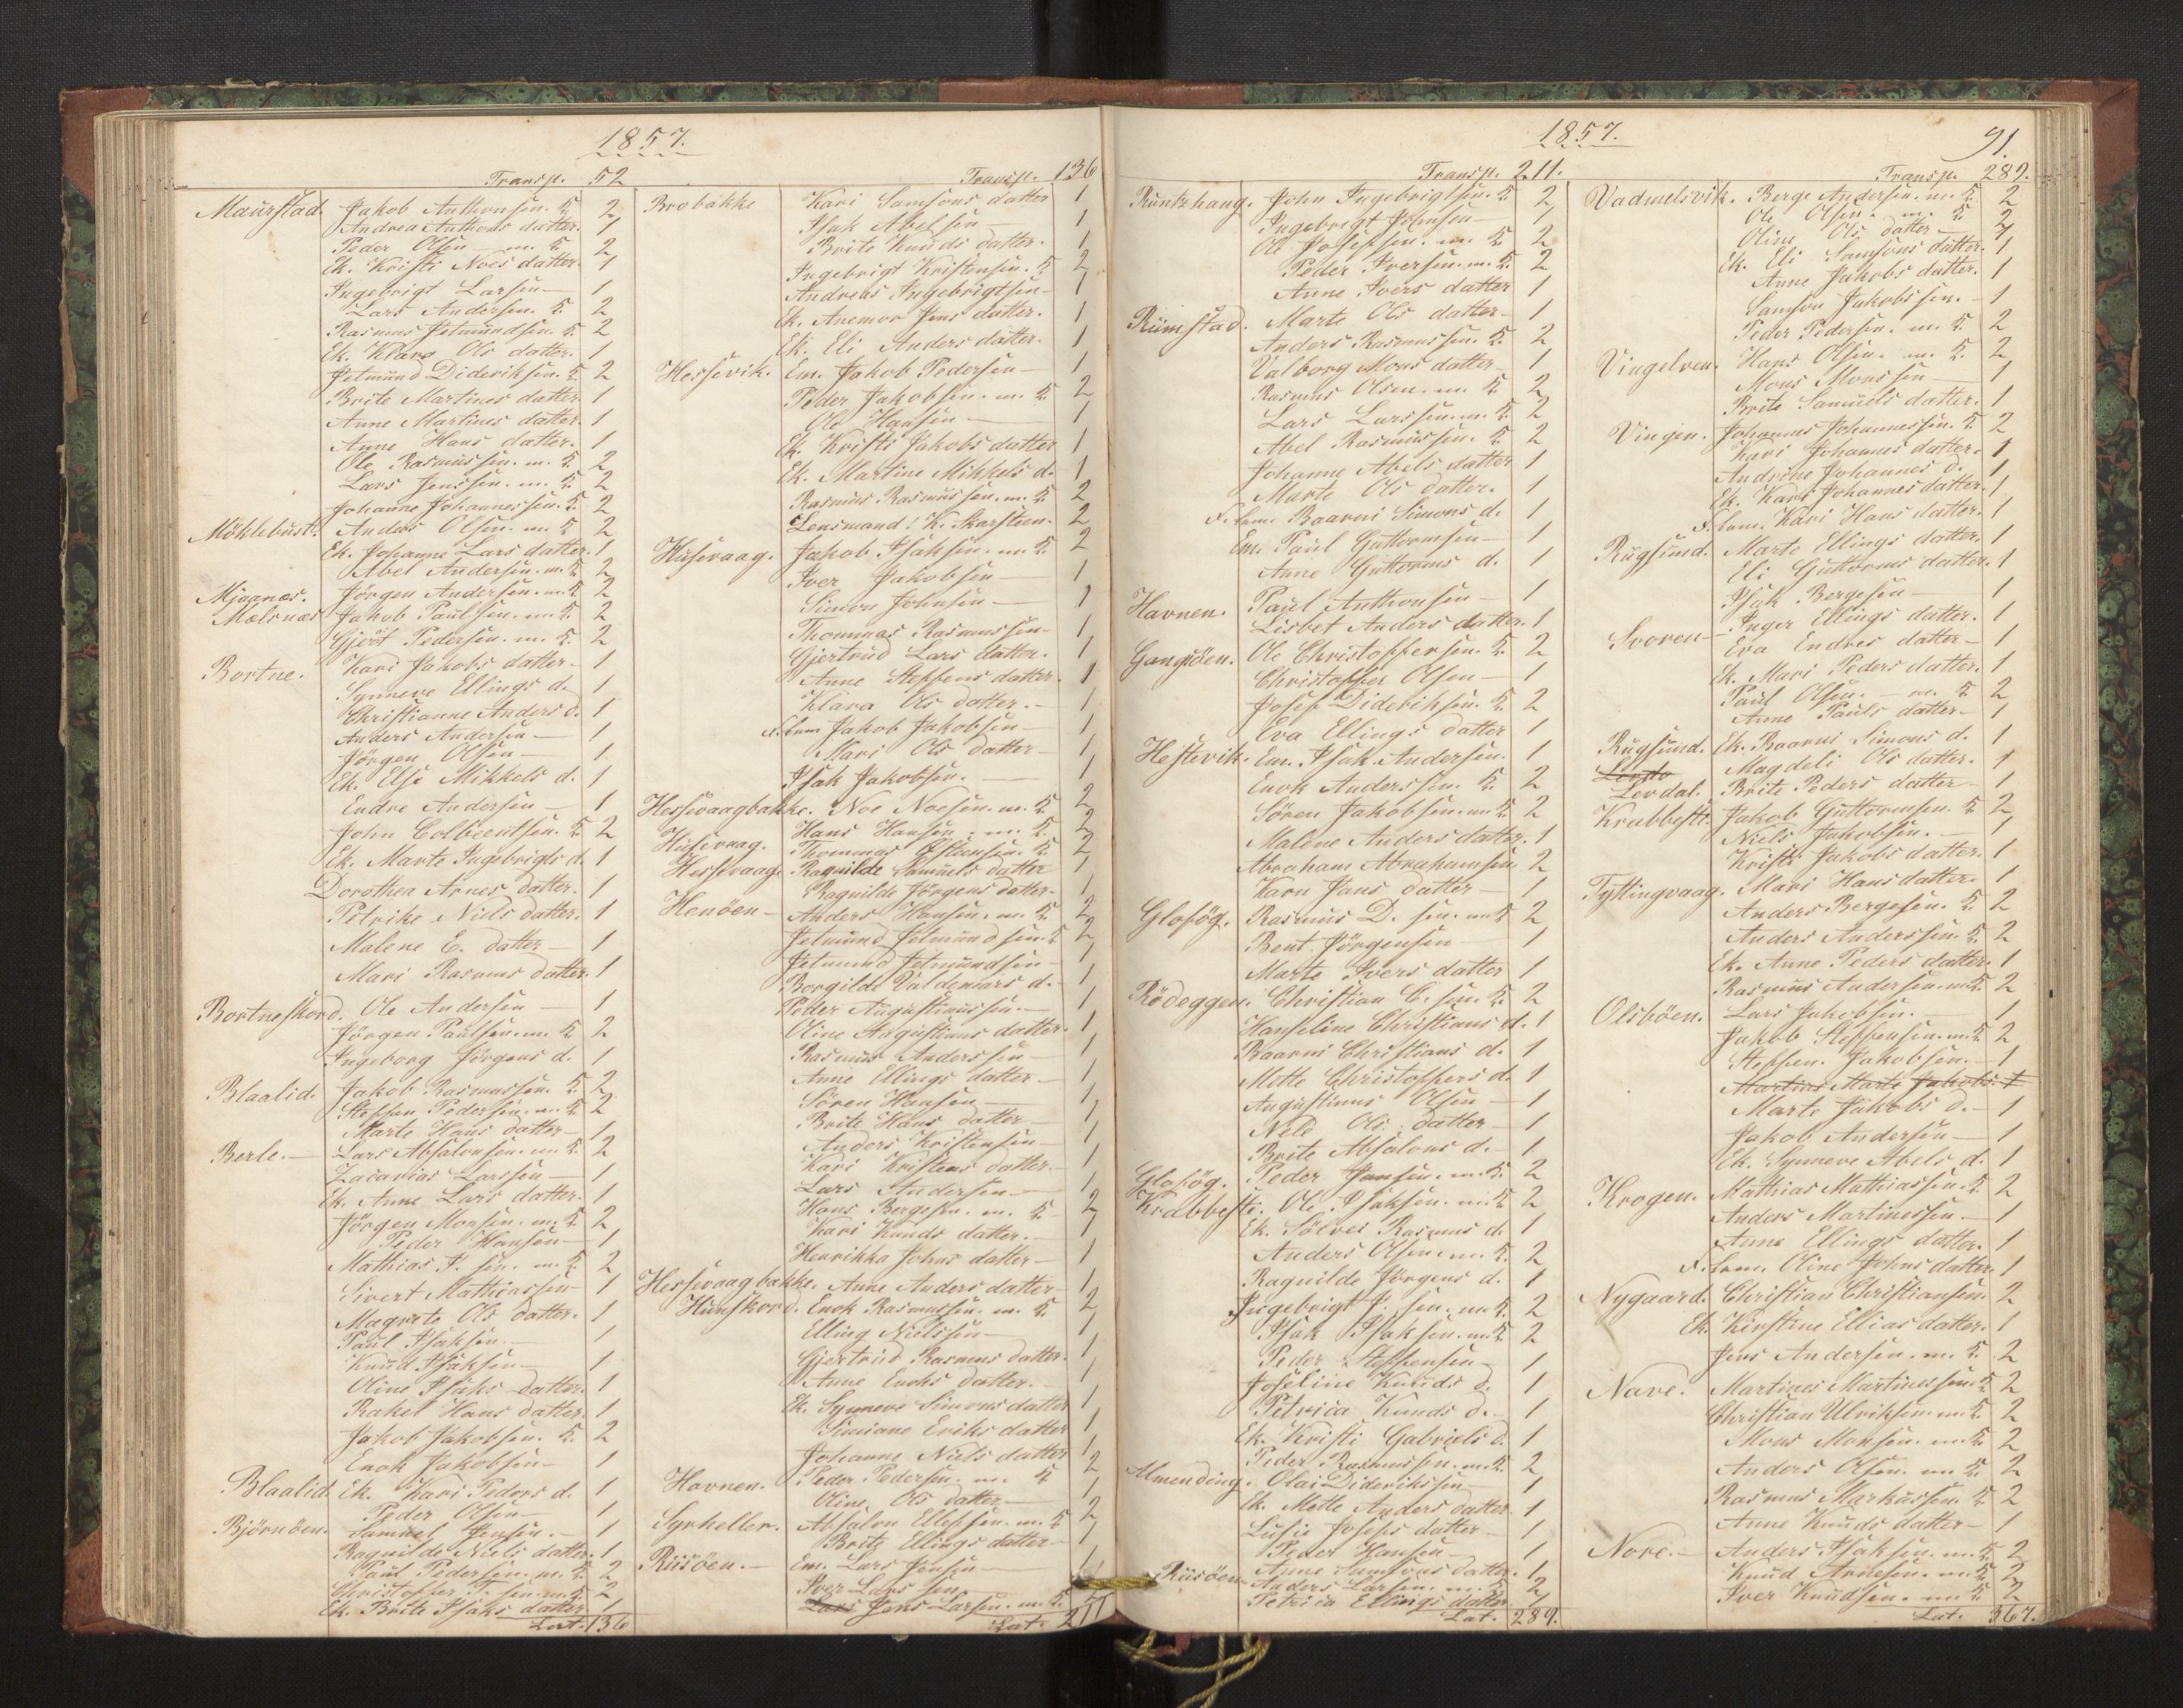 1857.
Transp. 52
Maurstad. Jakob Anthonsen. K. 2
Andrea Anthons datter. 1
Peder Olsen m. K. 2
Ek. Kristi Noes datter. 1
Ingebrigt Larsen 1
Lars Andersen. K. 2
Rasmus Jetmundsen. K. 2
Ek. Klara Ols datter. 1
Jetmund Dideriksen. K. 2
Brite Martines datter 1
Anne Martines datter. 1
Anne Hans datter. 1
Ole Rasmussen. m. K. 2
Lars Jenssen. m. K. 2
Johanne Johannessen. K. 2
Möklebust. Anders Olsen. m. K. 2
Ek. Johanne Lars datter. 1
Abel Andersen. m. K. 2
Mjaanæs. Jörgen Andersen. m. K. 2
Mælsnæs Jakob Paulsen. m. K. 2
Gjert Pedersen. m. K. 2
Bortne. Kari Jakobs datter 1
Synneve Ellings d. 1
Christianne Anders d. 1
Anders Andersen 1
Jörgen Olsen 1
Ek. Else Mikkels d. 1
Endre Andersen 1
John Colbeentsen. K. 2
Ek. Marte Ingebrigts d. 1
Dorothea Arnes datter. 1
Petrike Niels datter. 1
Malene E. datter 1
Mari Rasmus datter. 1
Bortneskord. Ole Andersen 1
Jörgen Paulsen m. K. 2
Ingeborg Jörgens d. 1
Blaalid. Jakob Rasmussen. K. 2
Steffen Pedersen. m. K. 2
Marte Hans datter 1
Berle. Lars Absalonsen. m. K. 2
Zacarias Larssen 1
Ek. Anne Lars datter. 1
Jörgen Monsen. m. K. 2
Peder Hansen 1
Mathias J. sen. m. K. 2
Sivert Mathiassen 1
Magrete Ols datter. 1
Paul Isaksen. 1
Knud Isaksen 1
Oline Isaks datter. 1
Rakel Hans datter. 1
Jakob Jakobsen. K. 2
Enok Jakobsen 1
Blaalid. Ek. Kari Peders d. 1
Peder Olsen 1
Björnöen. Samuel Jensen. 1
Ragnilde Niels datter. 1
Paul Pedersen. m. K. 2
Christoffer T. sen. m. K. 2
Ek. Brite Isaks datter 1
Lat. 136
Transp. 136
Brobakke Kari Samsons datter 1
Isak Abelsen 1
Brite Knuds datter. 1
Ingebrigt Kristensen. K. 2
Andreas Ingebrigtsen 1
Ek. Anemor Jens datter. 1
Ek. Eli Anders datter. 1
Hessevik. Em. Jakob Pedersen 1
Peder Jakobsen. m. K. 2
Ole Hansen 1
Ek. Kristi Jakobs datter 1
Ek. Martine Mikkels d. 1
Rasmus Rasmussen. m. K. 2
Lensmand! K. Skarsteen. 2
Husevaag. Jakob Isaksen. m. K. 2
Iver Jakobsen 1
Simon Johnsen 1
Thommas Rasmussen 1
Gjertrud Lars datter. 1
Anne Steffens datter. 1
Klara Ols datter. 1
F. Lem Jakob Jakobsen 1
Mari Ols datter 1
Isak Jakobsen. 1
Hessevaagbakke. Noe Noesen. m. K. 2
Hans Hansen. m. K. 2
Husevaag. Thommas K. 2
Hessevaag. Ragnilde Samuels datter 1
Ragnilde Jörgens datter. 1
Henöen Anders Hansen. m. K. 2
Jetmund Jetmundsen. K. 2
Jetmund Jetmundsen 1
Borgilde Valdemars d. 1
Peder Augustinussen. 1
Oline Augustinus datter. 1
Rasmus Anderssen 1
Anne Ellings datter 1
Sören Hansen 1
Brite Hans datter 1
Anders Kristensen 1
Kari Kristens datter. 1
Lars Andersen 1
Hans Bergesen. m. K. 2
Kari Knuds datter. 1
Henrikka Johns datter 1
Hessevaagbakke. Anne Anders datter 1
Hunskord. Enok Rasmussen. m. K. 2
Elling Nielssen 1
Gjertrud Rasmus datter. 1
Anne Enoks datter. 1
Ek. Synneve Simons datter 1
Simiane Eriks datter 1
Johanne Niels datter 1
Havnen. Peder Pedersen. m. K. 2
Oline Ols datter 1
Syrheller. Absalon Ellessen. m. K. 2
Brite Ellings datter 1
Risöen. Em. Lars Jensen 1
Iver Lars sen. 1
Lars Jens Larsen. m. K. 2
Lat. 211
1857.
91.
Transp. 211.
Runtzhaug. John Ingebrigtsen. K. 2
Ingebrigt Johnsen 1
Ole Josefsen. m. K. 2
Peder Iversen. m. K. 2
Anne Ivers datter 1
Rimstad. Marte Ols datter 1
Anders Rasmussen. K. 2
Valborg Mons datter 1
Rasmus Olsen. m. K. 2
Lars Larssen. m. K. 2
Abel Rasmussen. K. 2
Johanne Abels datter 1
Marte Ols datter. 1
F. Lem. Baarni Simons d. 1
Em. Paul Guttormsen 1
Anne Guttorms d. 1
Havnen. Paul Anthonsen 1
Lisbet Anders datter. 1
Gangsöen. Ole Christoffersen. K. 2
Christoffer Olsen 1
Josef Dideriksen. K. 2
Eva Ellings datter 1
Hestevik. Em. Isak Andersen. 1
Enok Anderssen. K. 2
Sören Jakobsen. m. K. 2
Malene Anders datter. 1
Abraham Abrahamsen 2
Karn Jans datter 1
Glosög. Rasmus D. sen. m. K. 2
Bent Jörgensen 1
Marte Ivers datter 1
Rödeggen. Christian C. sen. K. 2
Hanseline Christians d. 1
Baarni Christians d. 1
Mette Christoffers d. 1
Augustinus Olsen 1
Nele Ols datter 1
Brite Absalons d. 1
Glosög. Peder Hansen. m. K. 2
Krabbesti. Ole Isaksen. m. K. 2
Ek. Sölvei Rasmus d. 1
Anders Olsen. m. K. 2
Ragnilde Jörgens d. 1
Ingebrigt J. sen. m. K. 2
Isak Isaksen. m. K. 2
Peder Steffensen 1
Joseline Knuds d. 1
Petrica Knuds d. 1
Ek. Kristi Gabriels d. 1
Peder Rasmussen. m. K. 2
Almending. Olai Dideriksen 1
Ek. Mette Anders datter. 1
Lusie Josefs datter 1
Peder Hansen 1
Anne Samsons datter. 1
Risöen Anders Larsen. m. K. 2
Petrica Ellings datter 1
Lat. 289.
Transp. 289.
Vadmelsvik. Berge Andersen. m. K. 2
Ole Olsen. m. K. 2
Oline Ols datter 1
Ek. Eli Samsons datter. 1
Anne Jakobs datter. 1
Samson Jakobssen. 1
Peder Pedersen. m. K. 2
Vingelven. Hans Olsen. m. K. 2
Mons Monssen 1
Brite Samuels datter. 1
Vingen. Johannes Johannessen. K. 2
Kari Johannes datter. 1
Andrine Johannes d. 1
Ek. Kari Johannes datter. 1
F. Lem. Kari Hans datter. 1
Rugsund. Marte Ellings datter. 1
Eli Guttorms datter. 1
Isak Bergesen 1
Inger Ellings datter. 1
Svoren Eva Endres datter 1
Ek. Mari Peders datter. 1
Paul Olsen. m. K. 2
Anne Pauls datter 1
Rugsund. Ek. Baarni Simons d. 1
Magdeli Ols datter. 1
Levdal. Brite Peders datter 1
Krabbesti. Jakob Guttormsen. K. 2
Niels Jakobsen. 1
Kristi Jakobs datter. 1
Tyttingvaag. Mari Hans datter. 1
Anders Bergesen. K. 2
Anders Anderssen. K. 2
Ek. Anne Peders datter. 1
Rasmus Andersen. m. K. 2
Olsböen. Lars Jakobsen. 1
Jakob Steffensen. m. K. 2
Steffen Jakobsen. 1
Martine Marte Jakobs 1
Marte Jakobs d. 1
Jakob Andersen 1
Ek. Synneve Abels d. 1
Krogen. Mathias Mathiassen. K. 2
Anders Martinessen 1
Anne Ellings datter. 1
F. Lem. Oline Johns datter. 1
Nygaard. Christian Christiansen. 2
Ek. Kirstine Ellias datter. 1
Jens Andersen. m. K. 2
Nave. Martines Martinessen. K. 2
Christian Ulriksen. m. K. 2
Mons Monsen. m. K. 2
Anders Olsen. m. K. 2
Rasmus Markussen. K. 2
Anne Knuds datter 1
Nore. Anders Isaksen. m. K. 2
Knud Arnesen. m. K. 2
Iver Knudsen. m. K. 2
Lat. 367.